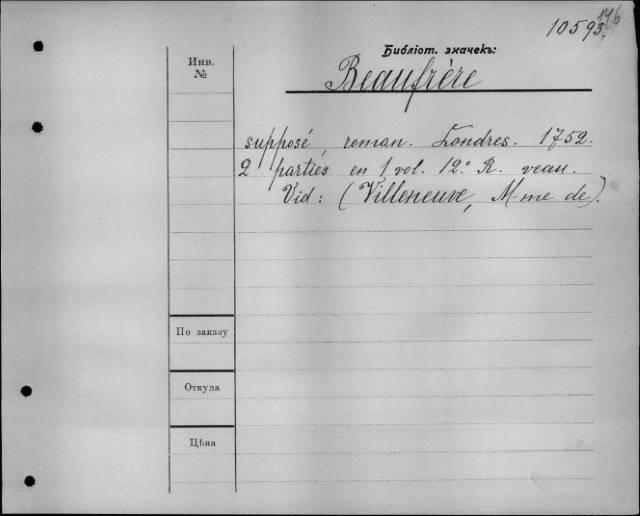 10593.
146
Библіот. значекъ:
Инв.
№
Beaufrère
supposé, roman. Londres. 1752.
2 parties en 1 vol. 12.º R. veau.
Vid: (Villeneuve, M-me de).
По заказу
Откуда
Цѣна